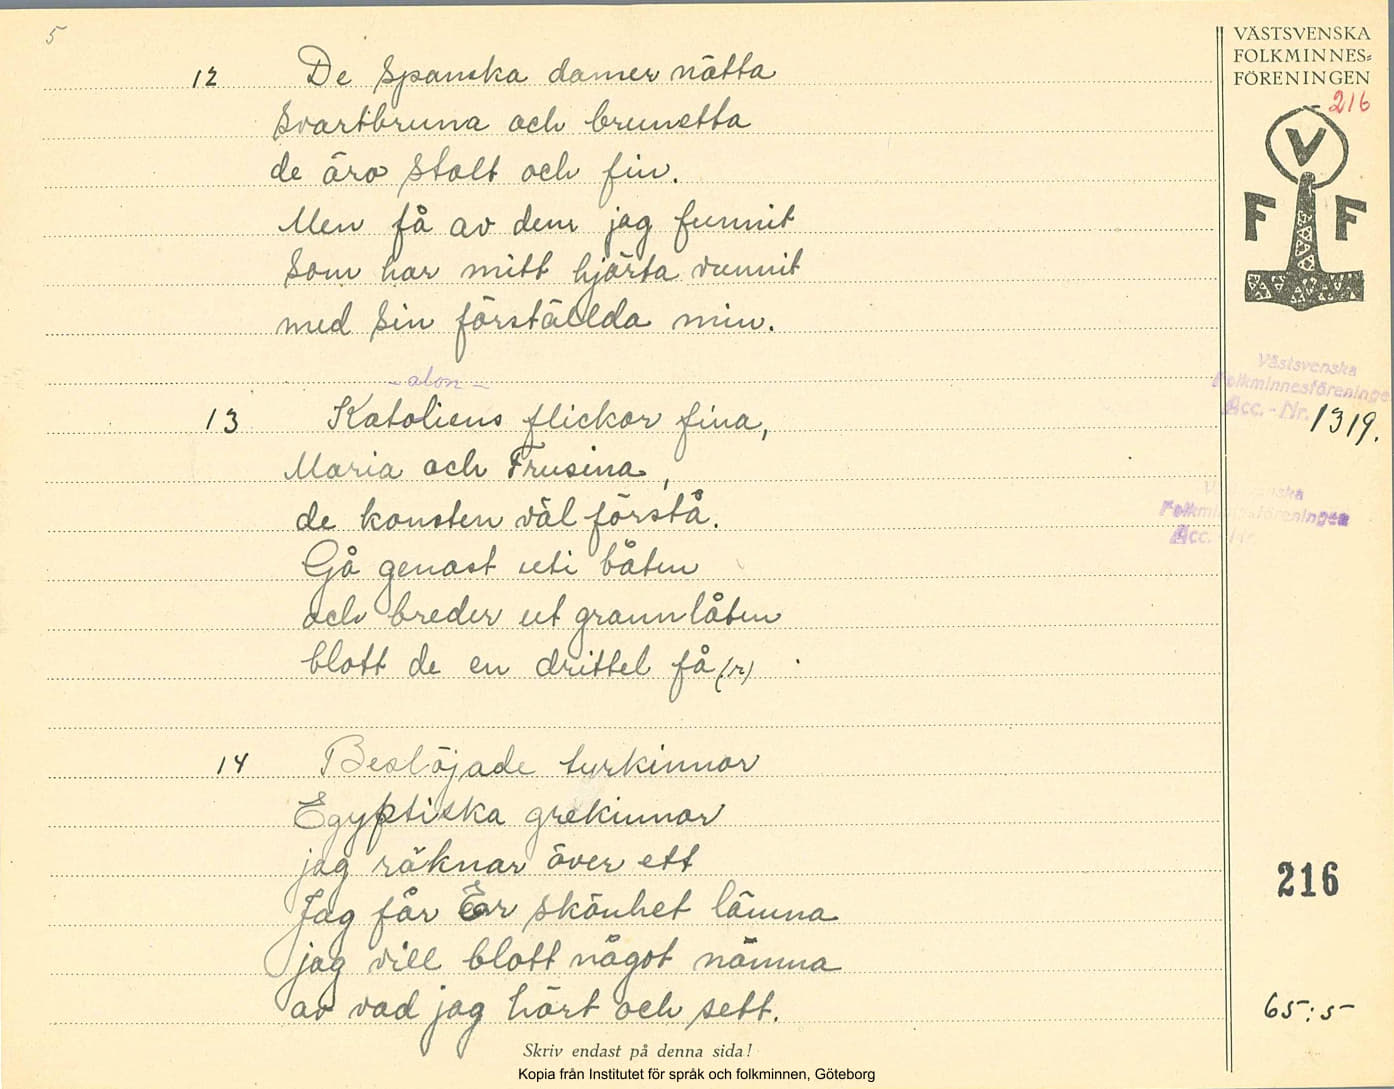 5
12 De Spanska damer nätta
Svartbruna och brunetta
de äro stolt och fin.
Men få av dem jag funnit
Som har mitt hjärta vunnit
med sin förställda min.
- alon -
13 Katoliens flickor fina,
Maria och Frusina,
de konsten väl förstå.
Gå genast uti båten
och breder ut grannlåten
blott de en drittel få (r)
14 Beslöjade turkinnor
Egyptiska grekinnor
jag räknar över ett
Jag får Er skönhet lämna
jag vill blott något nämna
av vad jag hört och sett.
Skriv endast på denna sida!
Kopia från Institutet för språk och folkminnen, Göteborg
VÄSTSVENSKA
FOLKMINNES=
FÖRENINGEN
216
V
F F
Västsvenska
Folkminnesföreninge
Acc. - Nr. 1319.
Folkminnesföreningen
Acc. - Nr.
216
65:5